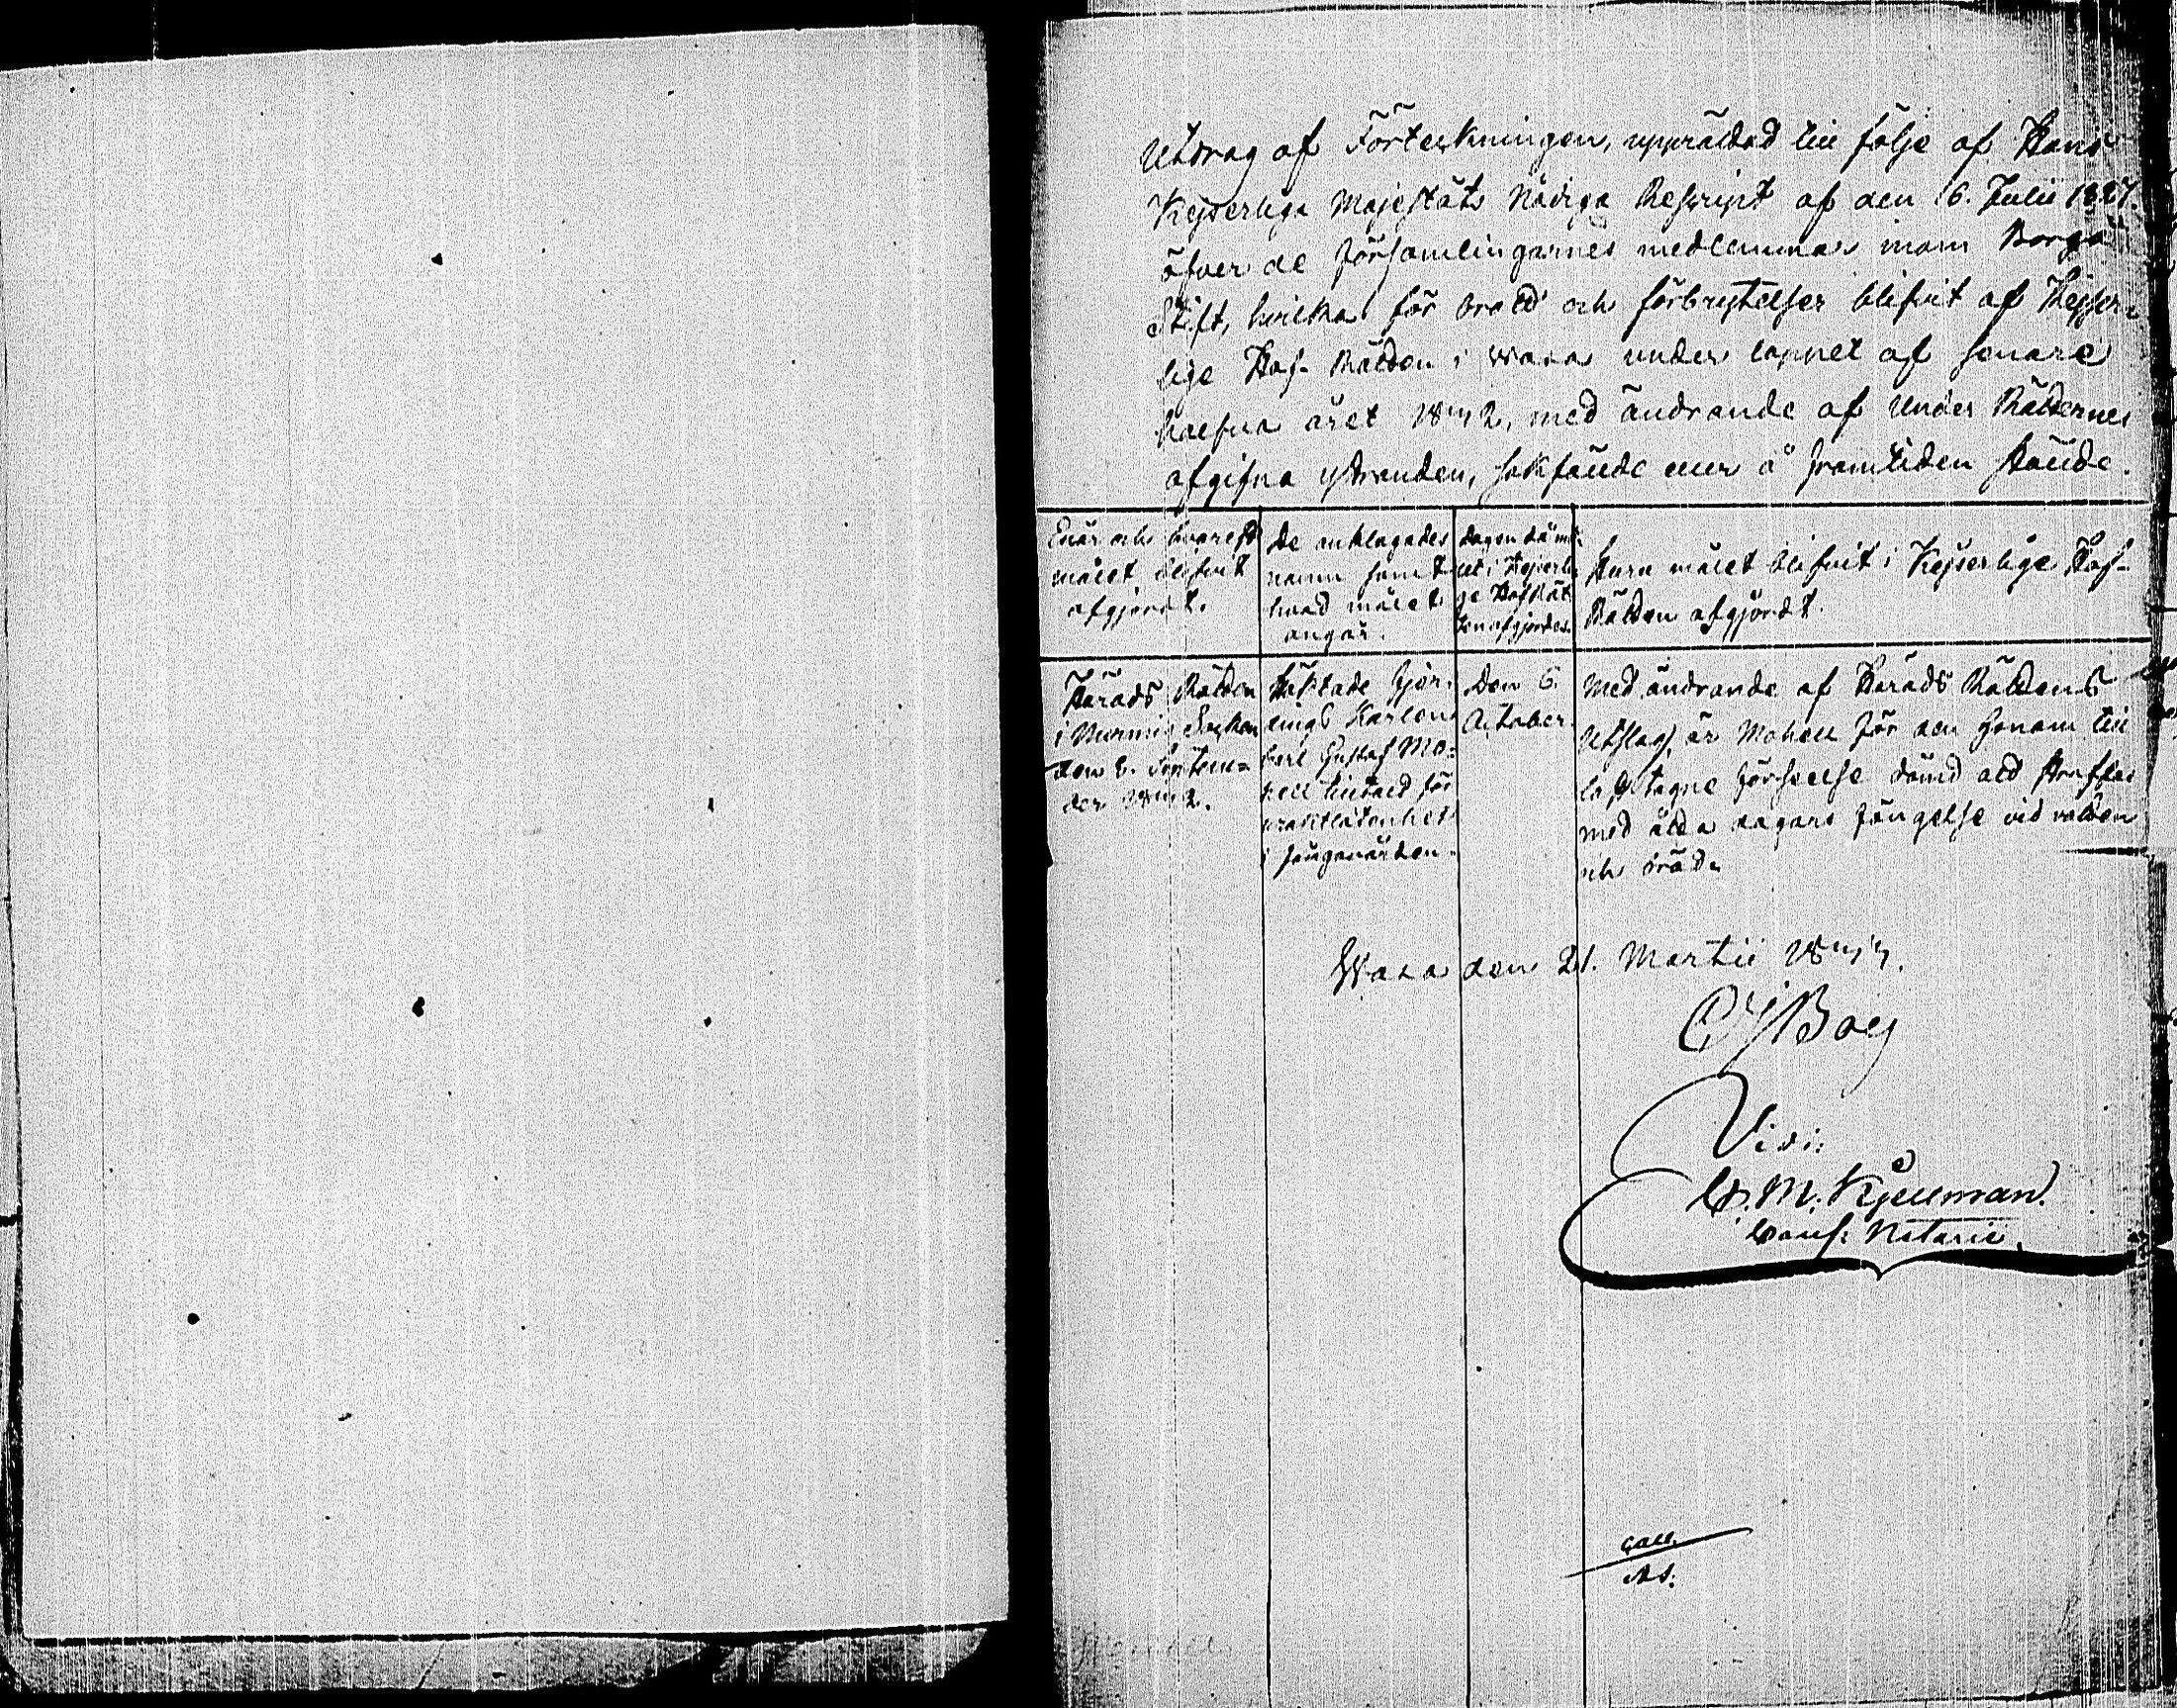 Utdrag af Förteckningen, upprättad till följe af Hans
Kejserliga Majestäts Nådiga Rescript af den 16. Julii 1827.
öfver de församlingarnes medlemmar inom Borgå
Stift, hvilka för brott och förbrytelser blifvit af Kejser-
lige Hof-Rätten i Wasa under loppet af senare
halfva året 1842, med ändrande af Under Rätternes
afgifna utslag, sakfällde eller å framtiden ställde.
Enär och hvarest
målet blifvit
afgjordt.
De anklagades
namn samt
hvad målet
angår.
Dagen då må-
let i Kejserli-
ge Hof Rät-
ten afgjordes.
Huru målet blifvit i Kejserlige Hof-
Rätten afgjordt.
Härads Rätten
i Nurmis Socken
den 2. Septem-
ber 1842.
Häktade
Karlen
Carl Gustaf Mo-
hell tilltald för
vraktlåtenhet
i fångvården.
Den 6.
October.
Med ändrande af Härads Rättens
Utslag, är Mohell för den honom till
last tagne förseelse dömd att straffas
med åtta dagars fängelse vid vatten
och bröd.
Wasa den 21. Martii 184
Boey
Vidi:
M. Kjellman.
Notarie.
Coll.